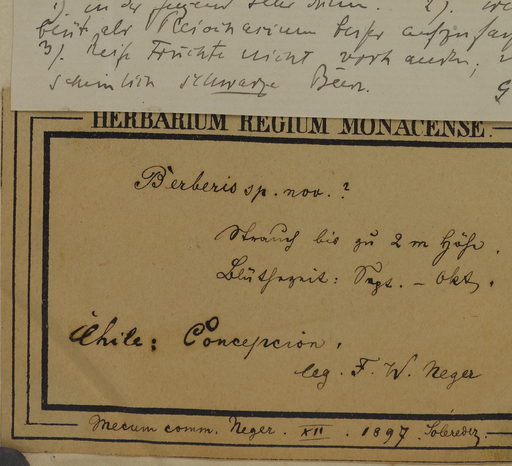 1). in der
blüt als
3). Reife Früchte nicht vorhanden;
scheinlich schwarze Beere.
HERBARIUM REGIUM MONACENSE.
Berberis sp. nov. ?
Strauch bis zu 2 m Höhe.
Blüthezeit: Sept. – Okt.
Chile: Concepcion.
leg. F. W. Neger
Mecum comm. Neger. XII. 1897. Solereder.